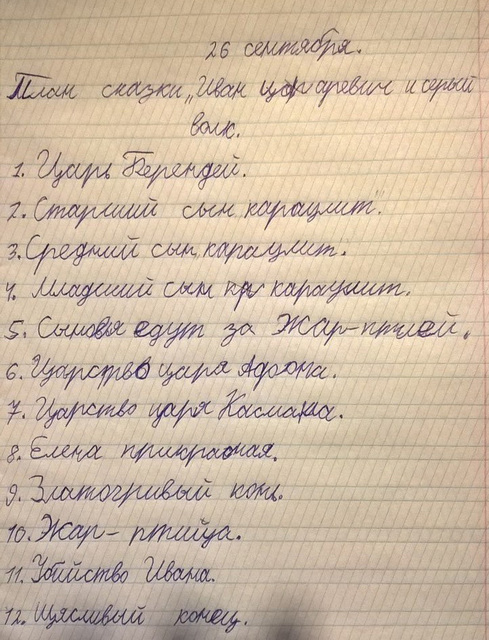 26 сентября.
План сказки „Иван царaревич и серый
волк.
1. Царь Берендей.
2. Старший сын караулит".
3. Средний сын караулит.
4. Младший сын караулит.
5. Сыновья едут за Жар-птией.
6. Царство царя Афрона.
7. Царство царя Касмана.
8. Елена прикрасная.
9. Златогривый конь.
10. Жар-птийца.
11. Убийство Ивана.
12. Щясливый конец.